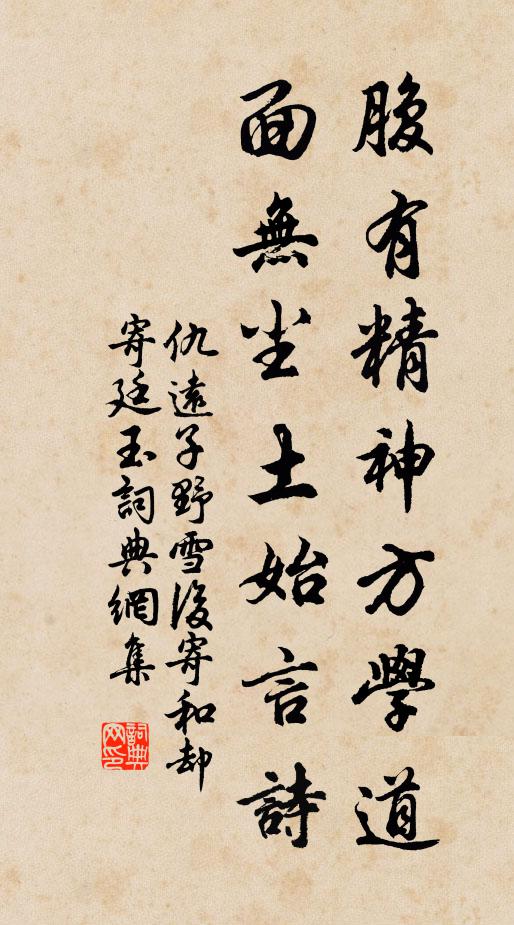 腹有精神方學道
面無尘土始言詩
仇遠子野雪後寄和却
寄廷玉詞典網集
詞典网印